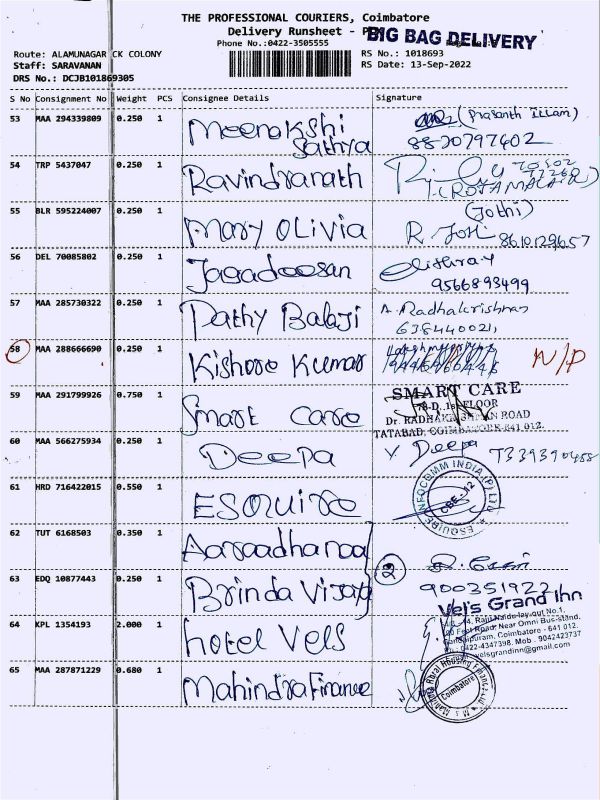 THE PROFESSIONAL COURIERS, Coimbatore
Delivery Runsheet -
BIG BAG DELIVERY
Phone No.:0422-3505555
Route: ALAMUNAGAR CK COLONY
RS No.: 1018693
Staff: SARAVANAN
RS Date: 13-Sep-2022
DRS No.: DCJB101869305
S No Consignment No Weight PCS Consignee Details Signature
53 MAA 294339809 0.250 1 Meenakshi Sathya (Prasanth Illam)
8820797402
54 TRP 5437047 0.250 1 Ravindranath
55 BLR 595224007 0.250 1 Mary Olivia (Jothi)
R. Joti 8610129657
56 DEL 70085802 0.250 1 Jagadeesan
9566893499
57 MAA 285730322 0.250 1 Pathy Balaji A. Radhakrishnan
638440021,
58 MAA 288666690 0.250 1 Kishore Kumar N/P
59 MAA 291799926 0.750 1 Smart Care SMART CARE
78-D, 1st FLOOR
Dr. RADHAKRISHNAN ROAD
TATABAD, COIMBATORE-641 012.
60 MAA 566275934 0.250 1 Deepa Y Deepa 7339390458
61 HRD 716422015 0.550 1 ESQUIRE ESQUIRE INFOCOMM INDIA (P) LTD
CBE-12
62 TUT 6168503 0.350 1 Aaraadhanaa
63 EDQ 10877443 0.250 1 Brinda Vijay 2
900351922
64 KPL 1354193 2.000 1 hotel Vels Vel's Grand Inn
Raju Naidu lay-out No.1,
Feet Road, Near Omni Bus-stand,
Gandhipuram, Coimbatore - 641 012.
0422-4347398. Mob : 9042423737
velsgrandinn@gmail.com
65 MAA 287871229 0.680 1 Mahindra Finance Mahindra Rural Housing Finance Ltd
Coimbatore